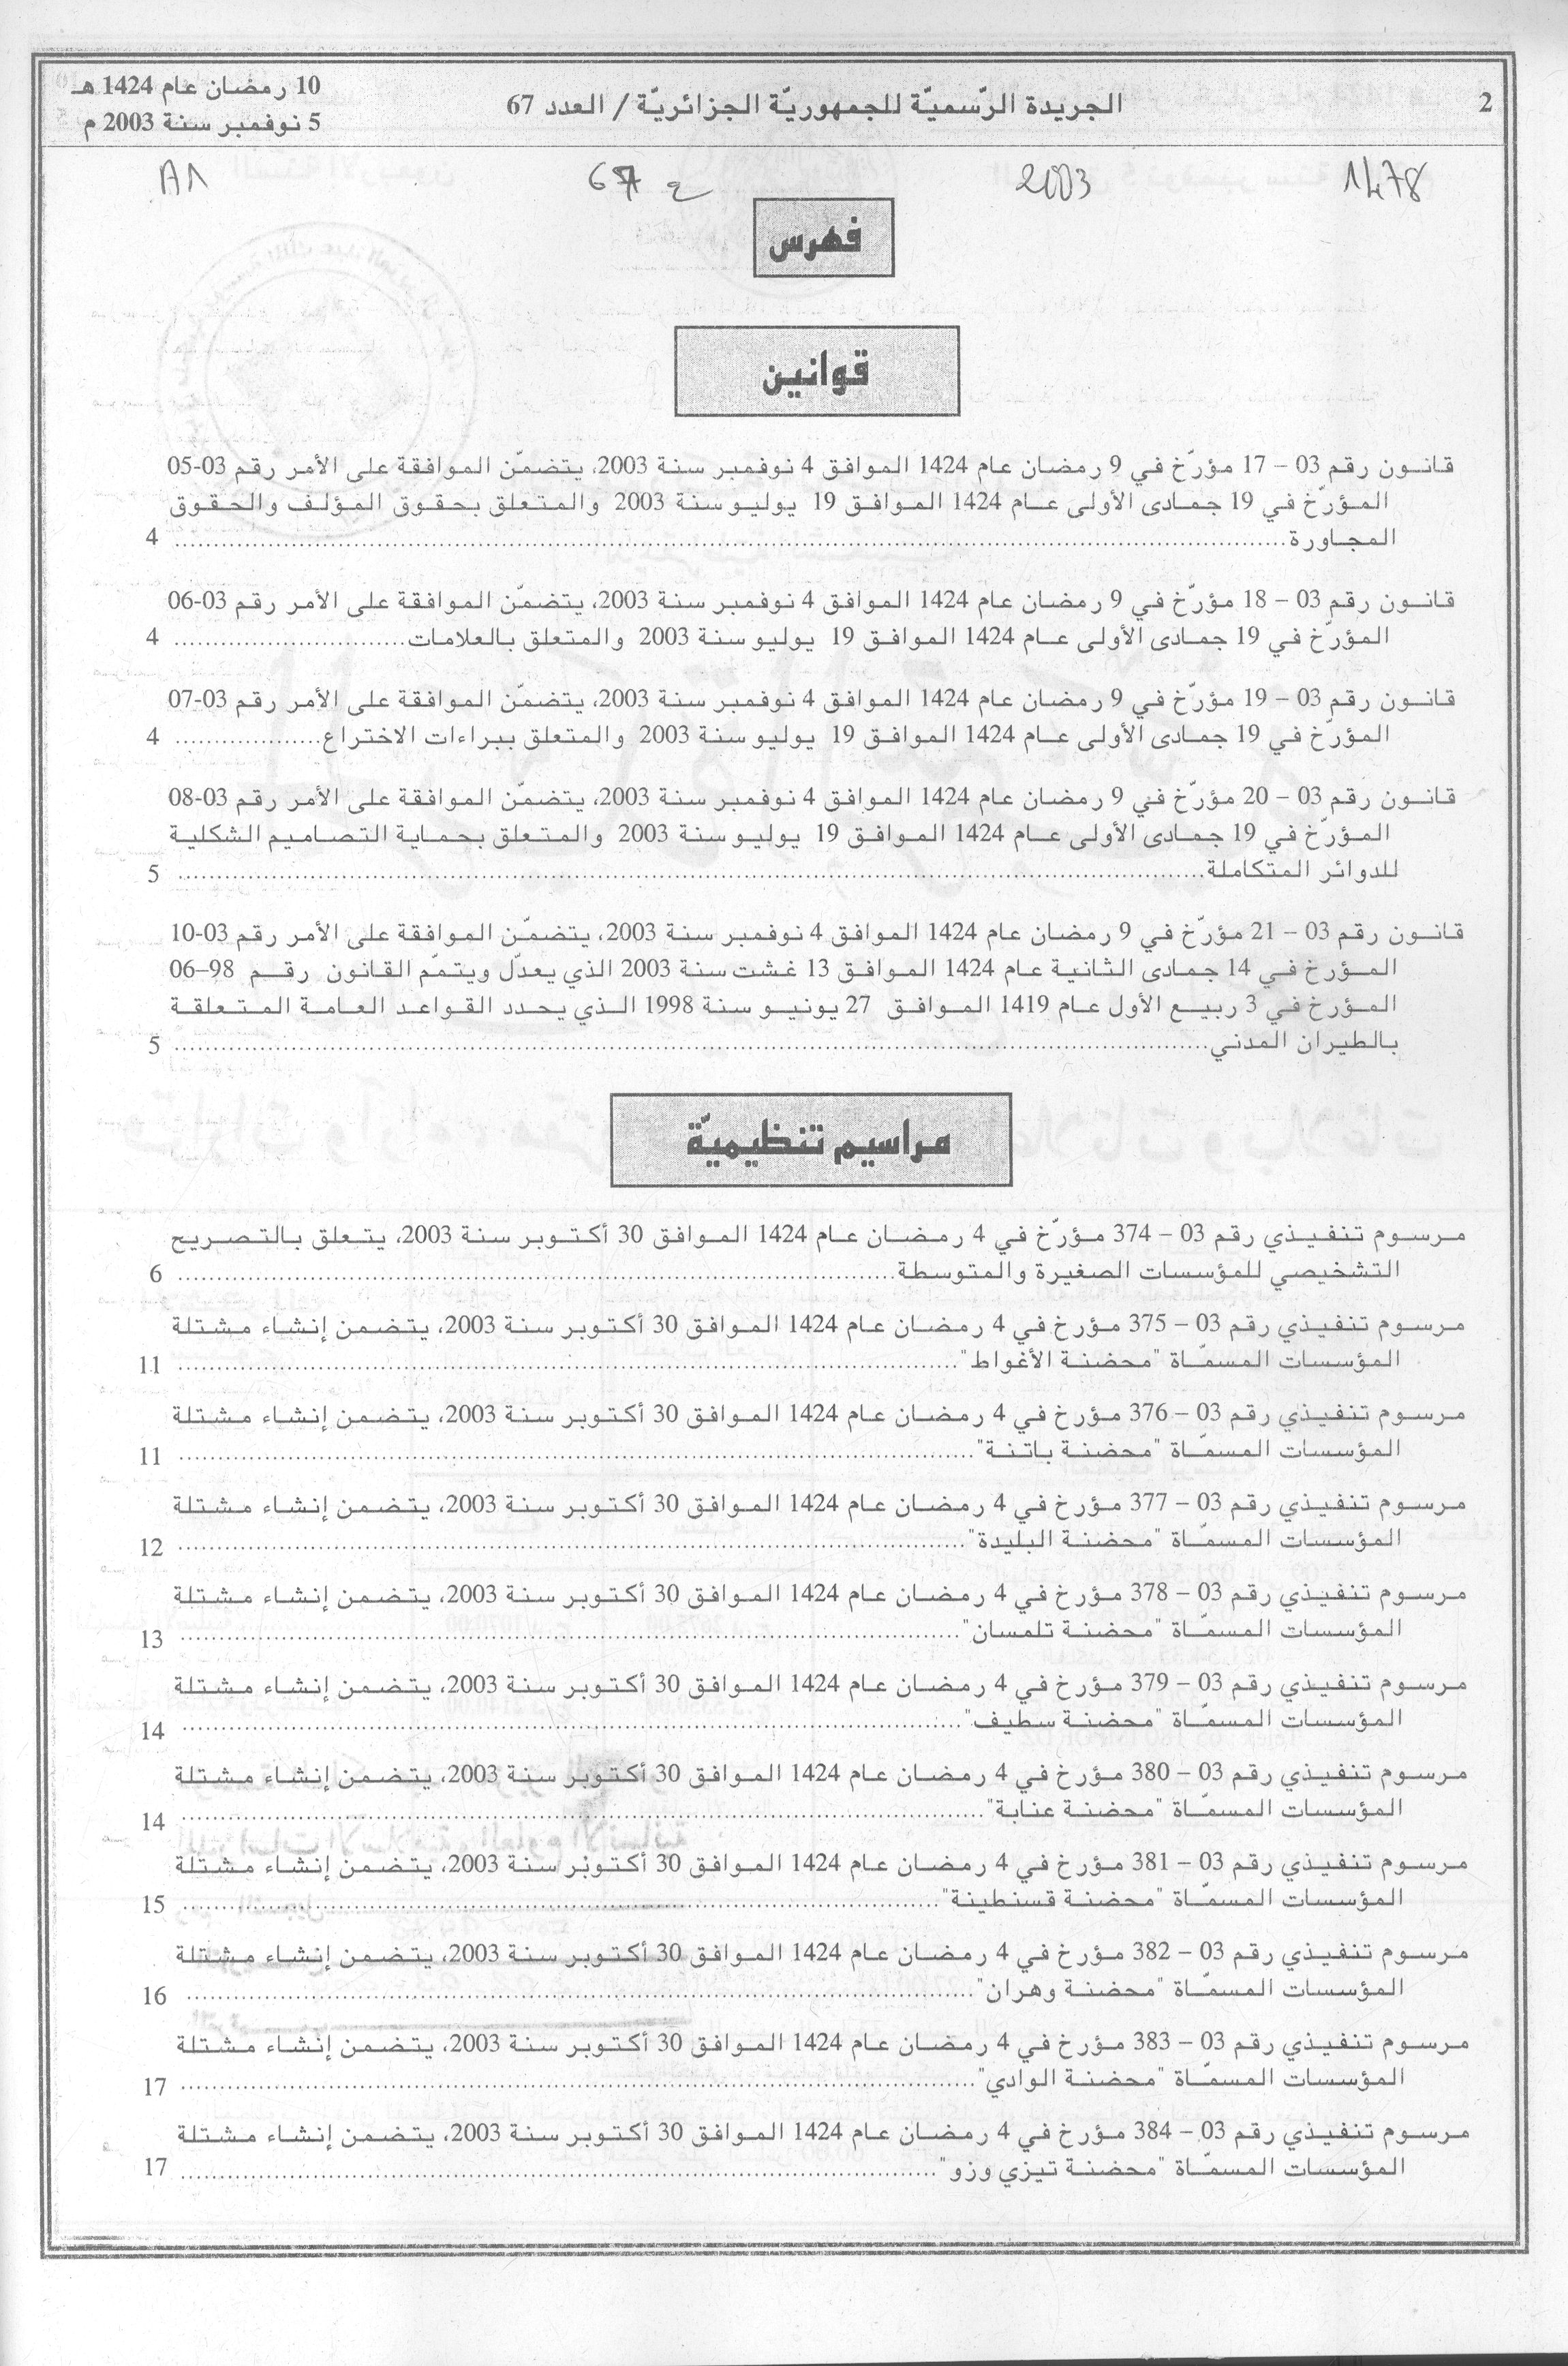 2
الجريدة الرّسميّة للجمهوريّة الجزائريّة / العدد 67
10 رمضان عام 1424 هـ
5 نوفمبر سنة 2003 م
1478 2003 67 ع A1
فهرس
قوانين
قانون رقم 03 – 17 مؤرّخ في 9 رمضان عام 1424 الموافق 4 نوفمبر سنة 2003، يتضمّن الموافقة على الأمر رقم 03-05
المؤرّخ في 19 جمادى الأولى عام 1424 الموافق 19 يوليو سنة 2003 والمتعلق بحقوق المؤلف والحقوق
المجاورة .......... 4
قانون رقم 03 – 18 مؤرّخ في 9 رمضان عام 1424 الموافق 4 نوفمبر سنة 2003، يتضمّن الموافقة على الأمر رقم 03-06
المؤرّخ في 19 جمادى الأولى عام 1424 الموافق 19 يوليو سنة 2003 والمتعلق بالعلامات .......... 4
قانون رقم 03 – 19 مؤرّخ في 9 رمضان عام 1424 الموافق 4 نوفمبر سنة 2003، يتضمّن الموافقة على الأمر رقم 03-07
المؤرّخ في 19 جمادى الأولى عام 1424 الموافق 19 يوليو سنة 2003 والمتعلق ببراءات الاختراع .......... 4
قانون رقم 03 – 20 مؤرّخ في 9 رمضان عام 1424 الموافق 4 نوفمبر سنة 2003، يتضمّن الموافقة على الأمر رقم 03-08
المؤرّخ في 19 جمادى الأولى عام 1424 الموافق 19 يوليو سنة 2003 والمتعلق بحماية التصاميم الشكلية
للدوائر المتكاملة .......... 5
قانون رقم 03 – 21 مؤرّخ في 9 رمضان عام 1424 الموافق 4 نوفمبر سنة 2003، يتضمّن الموافقة على الأمر رقم 03-10
المؤرخ في 14 جمادى الثانية عام 1424 الموافق 13 غشت سنة 2003 الذي يعدّل ويتمّم القانون رقم 98–06
المؤرخ في 3 ربيع الأول عام 1419 الموافق 27 يونيو سنة 1998 الذي يحدد القواعد العامة المتعلقة
بالطيران المدني .......... 5
مراسيم تنظيميّة
مرسوم تنفيذي رقم 03 – 374 مؤرّخ في 4 رمضان عام 1424 الموافق 30 أكتوبر سنة 2003، يتعلق بالتصريح
التشخيصي للمؤسسات الصغيرة والمتوسطة .......... 6
مرسوم تنفيذي رقم 03 – 375 مؤرخ في 4 رمضان عام 1424 الموافق 30 أكتوبر سنة 2003، يتضمن إنشاء مشتلة
المؤسسات المسمّاة "محضنة الأغواط" .......... 11
مرسوم تنفيذي رقم 03 – 376 مؤرخ في 4 رمضان عام 1424 الموافق 30 أكتوبر سنة 2003، يتضمن إنشاء مشتلة
المؤسسات المسمّاة "محضنة باتنة" .......... 11
مرسوم تنفيذي رقم 03 – 377 مؤرخ في 4 رمضان عام 1424 الموافق 30 أكتوبر سنة 2003، يتضمن إنشاء مشتلة
المؤسسات المسمّاة "محضنة البليدة" .......... 12
مرسوم تنفيذي رقم 03 – 378 مؤرخ في 4 رمضان عام 1424 الموافق 30 أكتوبر سنة 2003، يتضمن إنشاء مشتلة
المؤسسات المسمّاة "محضنة تلمسان" .......... 13
مرسوم تنفيذي رقم 03 – 379 مؤرخ في 4 رمضان عام 1424 الموافق 30 أكتوبر سنة 2003، يتضمن إنشاء مشتلة
المؤسسات المسمّاة "محضنة سطيف" .......... 14
مرسوم تنفيذي رقم 03 – 380 مؤرخ في 4 رمضان عام 1424 الموافق 30 أكتوبر سنة 2003، يتضمن إنشاء مشتلة
المؤسسات المسمّاة "محضنة عنابة" .......... 14
مرسوم تنفيذي رقم 03 – 381 مؤرخ في 4 رمضان عام 1424 الموافق 30 أكتوبر سنة 2003، يتضمن إنشاء مشتلة
المؤسسات المسمّاة "محضنة قسنطينة" .......... 15
مرسوم تنفيذي رقم 03 – 382 مؤرخ في 4 رمضان عام 1424 الموافق 30 أكتوبر سنة 2003، يتضمن إنشاء مشتلة
المؤسسات المسمّاة "محضنة وهران" .......... 16
مرسوم تنفيذي رقم 03 – 383 مؤرخ في 4 رمضان عام 1424 الموافق 30 أكتوبر سنة 2003، يتضمن إنشاء مشتلة
المؤسسات المسمّاة "محضنة الوادي" .......... 17
مرسوم تنفيذي رقم 03 – 384 مؤرخ في 4 رمضان عام 1424 الموافق 30 أكتوبر سنة 2003، يتضمن إنشاء مشتلة
المؤسسات المسمّاة "محضنة تيزي وزو" .......... 17